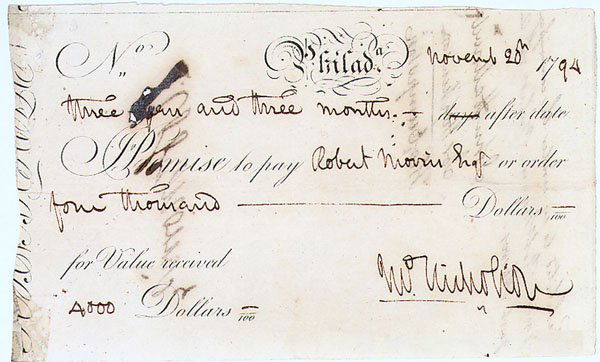 No. Philada. Novemb 20th 1794
three years and three months — days after date
I Promise to pay Robert Morris Esqr or order
four thousand ——— Dollars —/100
for Value received
Jno. Nicholson
4000 Dollars —/100